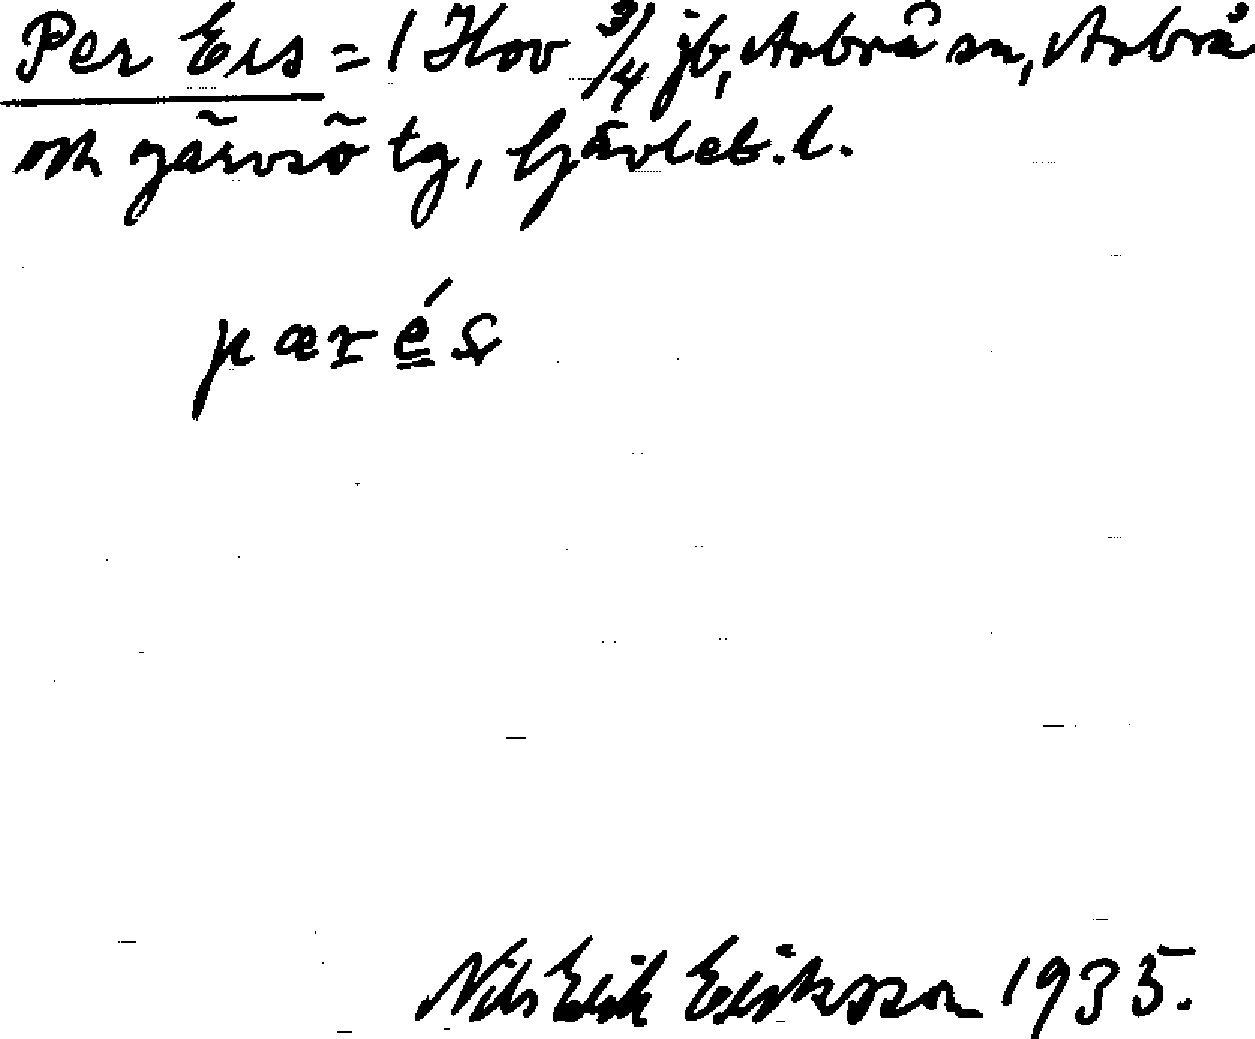 Per Ers = 1 Hov 3/4 jb, Arbrå sn, Arbrå
och Järvsö tg, Gävleb. l.
pærés
Nils Erik Eriksson 1935.